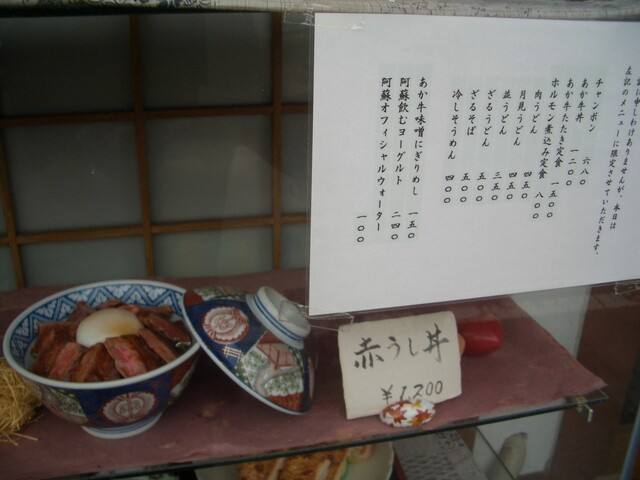 左記のメニューに限定させていただきます。
チャンポン 六八〇
あか牛丼 一二〇〇
あか牛たたき定食 一五〇〇
ホルモン煮込み定食 八〇〇
肉うどん 四五〇
月見うどん 四五〇
並うどん 三五〇
ざるうどん 五〇〇
ざるそば 五〇〇
冷しそうめん 四〇〇
あか牛味噌にぎりめし 一五〇
阿蘇飲むヨーグルト 二四〇
阿蘇オフィシャルウォーター 一〇〇
赤うし丼
¥1,200